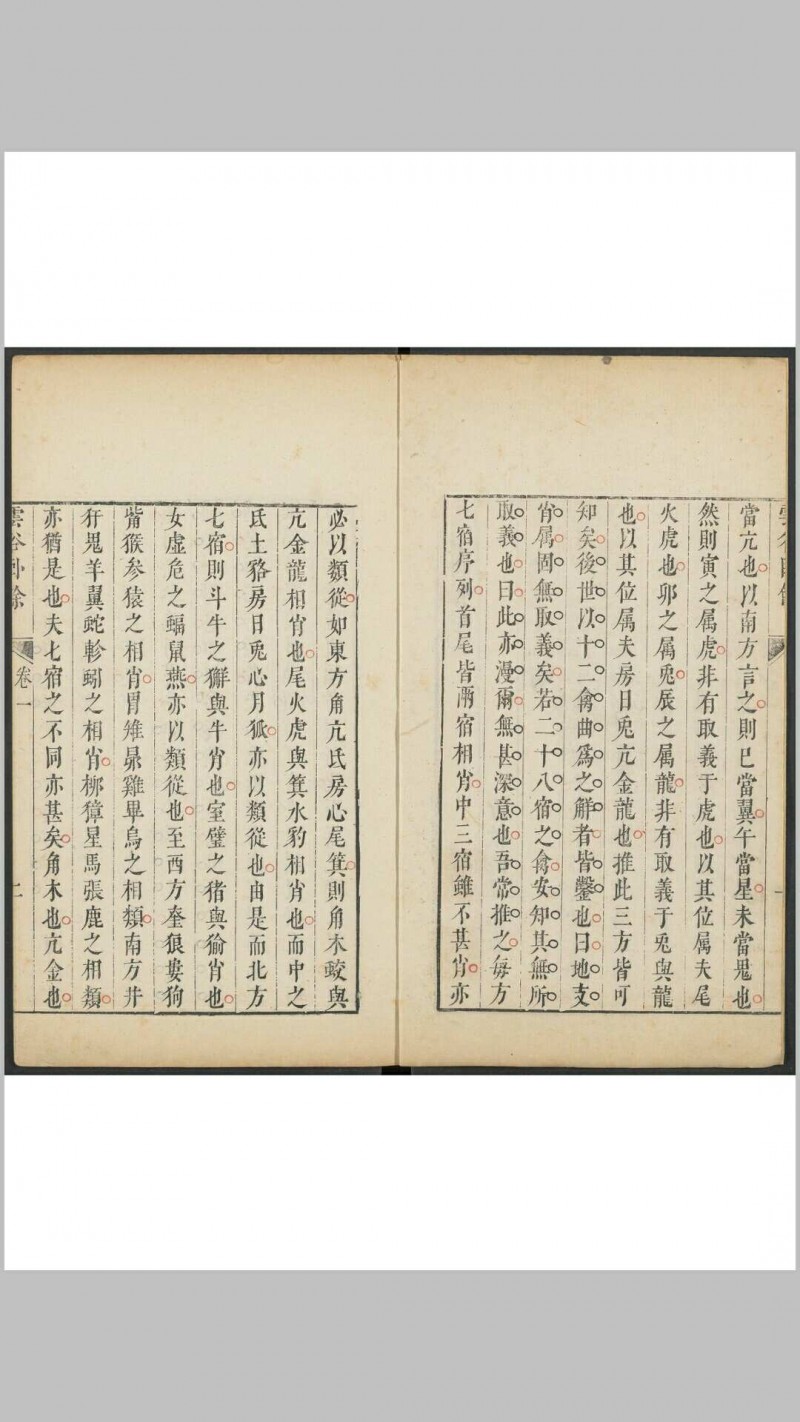 當亢也以南方言之則巳當翼午當星未當鬼也
然則寅之属虎非有取義于虎也以其位属夫尾
火虎也卯之属兎辰之属龍非有取義于兎與龍
也以其位属夫房日兎亢金龍也推此三方皆可
知矣後世以十二禽曲爲之解者皆鑿也曰地支
肖属固無取義矣若二十八宿之禽安知其無所
取義也曰此亦漫爾無甚深意也吾常推之每方
七宿序列首尾皆兩宿相肖中三宿雖不甚肖亦
必以類從如東方角亢氐房心尾箕則角木蛟與
亢金龍相肖也尾火虎與箕水豹相肖也而中之
氐土貉房日兎心月狐亦以類從也由是而北方
七宿則斗牛之獬與牛肖也室璧之猪與㺄肖也
女虚危之蝠鼠燕亦以類從也至西方奎狼婁狗
觜猴參猿之相肖胃雉昴雞畢烏之相類南方井
犴鬼羊翼蛇軫蚓之相肖桞獐星馬張鹿之相類
亦猶是也夫七宿之不同亦甚矣角木也亢金也
卷一
二